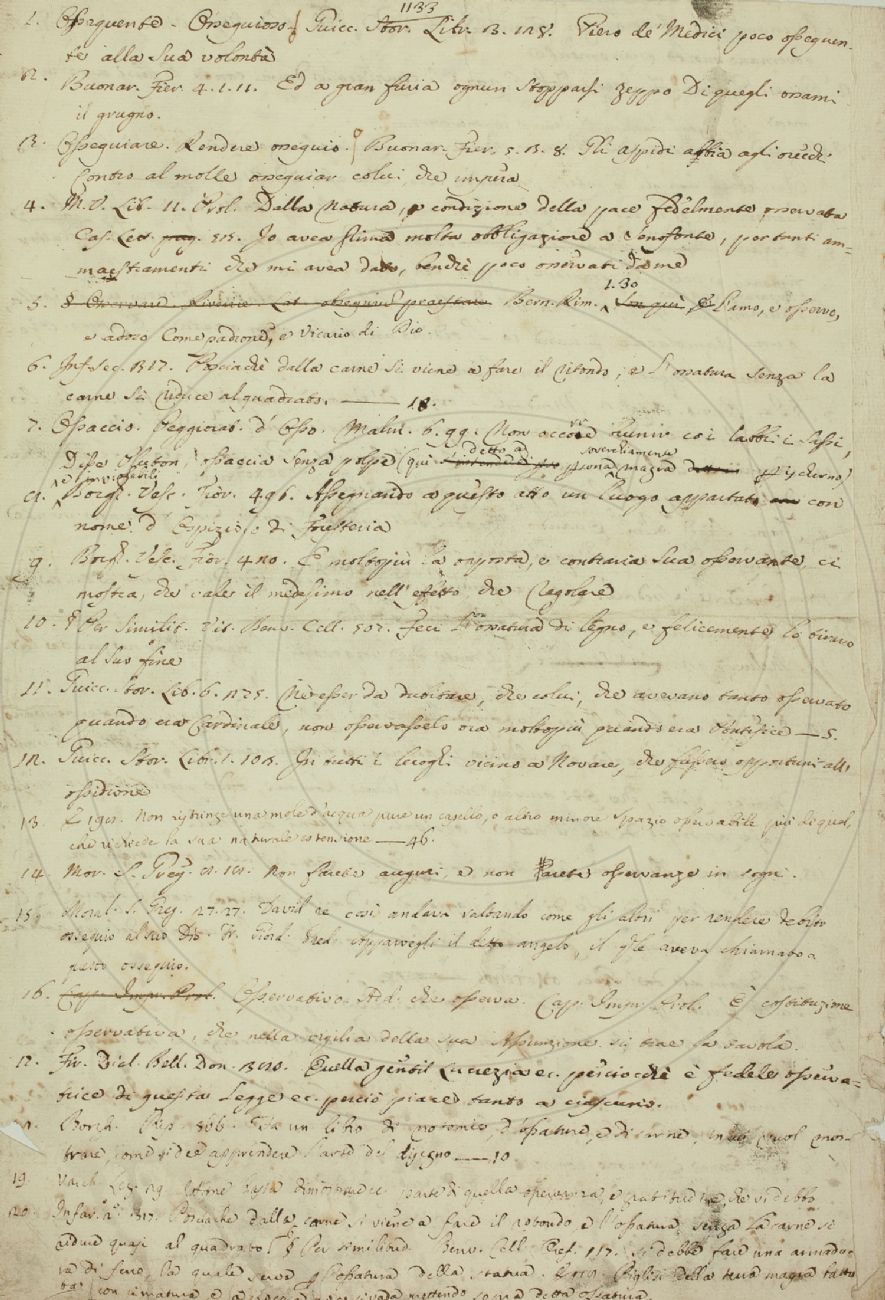 1133
1. Ossequente - Ossequioso. Guicc. Stor. Libr. 3. 128. Piero de' Medici poco ossequen-
te alla sua volontà
2. Buonar. Fier. 4. 1. 11. Ed a gran furia ognun stopparsi zeppo Di quegli ossami
il grugno.
3. Ossequiare. Rendere ossequio. Buonar. Fier. 5. 3. 8. Gli aspidi abbia agli orecchi
Contro al molle ossequiar colui che impera
4. M. V. Lib. 11. Prol. Dalla natura, e condizione della pace fedelmente osservata
Cas. Lett. Io avea molta obbligazione a Senofonte, per tanti am-
maestramenti che mi avea dato, benchè poco osservati da me
5. Bern. Rim. 1. 30 L'amo, e osservo,
e adoro Come padrone, e Vicario di Dio.
6. Inf. Sec. 317. Posciachè dalla carne si viene a fare il ritondo, e l'ossatura senza la
carne si riduce al quadrato. 18.
7. Ossaccio. Peggiorat. d'Osso. Malm. 6. 99. Non occorre co i labbri i sassi,
Disse Pluton, ossaccia senza polpe (qui detto a persona sovverchiamente magra
Borgh. Vesc. Fior. 496. Assegnando a questo atto un luogo appartato con
nome d'Ospizio, o di Foresteria
9. Borgh. Vesc. Fior. 420. E molto più la opposta, e contraria sua osservante ci
mostra, che vale il medesimo nell'effetto che Regolare
10. § Per similit. Vit. Benv. Cell. 507. Feci l'ossatura di legno, e felicemente la tiravo
al suo fine
11. Guicc. Stor. Lib. 6. 225. Nè esser da dubitare, che colui, che avevano tanto osservato
quando era Cardinale, non osservasselo ora molto più quando era Pontefice — 5.
12. Guicc. Stor. Libr. 1. In tutti i luoghi vicino a Novara, che fussero opportuni all'
ossidione
13. Non ristringe una mole d'acqua pure un capello, o altro minore spazio osservabile più di quel,
che richiede la sua naturale estensione — 46.
14. Mor. S. Greg. Non farete auguri, e non farete osservanze in sogni.
15. Moral. S. Greg. 27. 27. David re così andava saltando come gli altri per rendere debito
ossequio al suo Dio. Fr. Giord. Pred. Apparvegli il detto angelo, il qle aveva chiamato a
questo ossequio.
16. Osservativo. Add. che osserva. Cap. Impr. Prol. È costituzione
osservativa, che nella vigilia della sua Assunzione si trae la tavola.
17. Fir. Dial. Bell. Don. Quella gentil Lucrezia ec. perciocchè è fedele osserva-
trice di questa Legge ec. perciò piace tanto a ciascuno.
Borgh. Rip. Fa un libro di notomia, d'ossature, e di carne, in cui vuol mos-
trare, come si dee apprendere l'arte del disegno — 10
19. Varch. Lez. parte di quella osservanza, e gratitudine, che si debbe
20. Infar. 317. Posciachè dalla carne si viene a fare il rotondo e l'ossatura senza la carne si
riduce quasi al quadrato § Per similitud. Benv. Cell. Oref. 117. Si debbe fare una armadu-
ra di ferro, la quale serve per l'ossatura della statua. Piglisi della terra magra fatta
sopra detta ossatura.